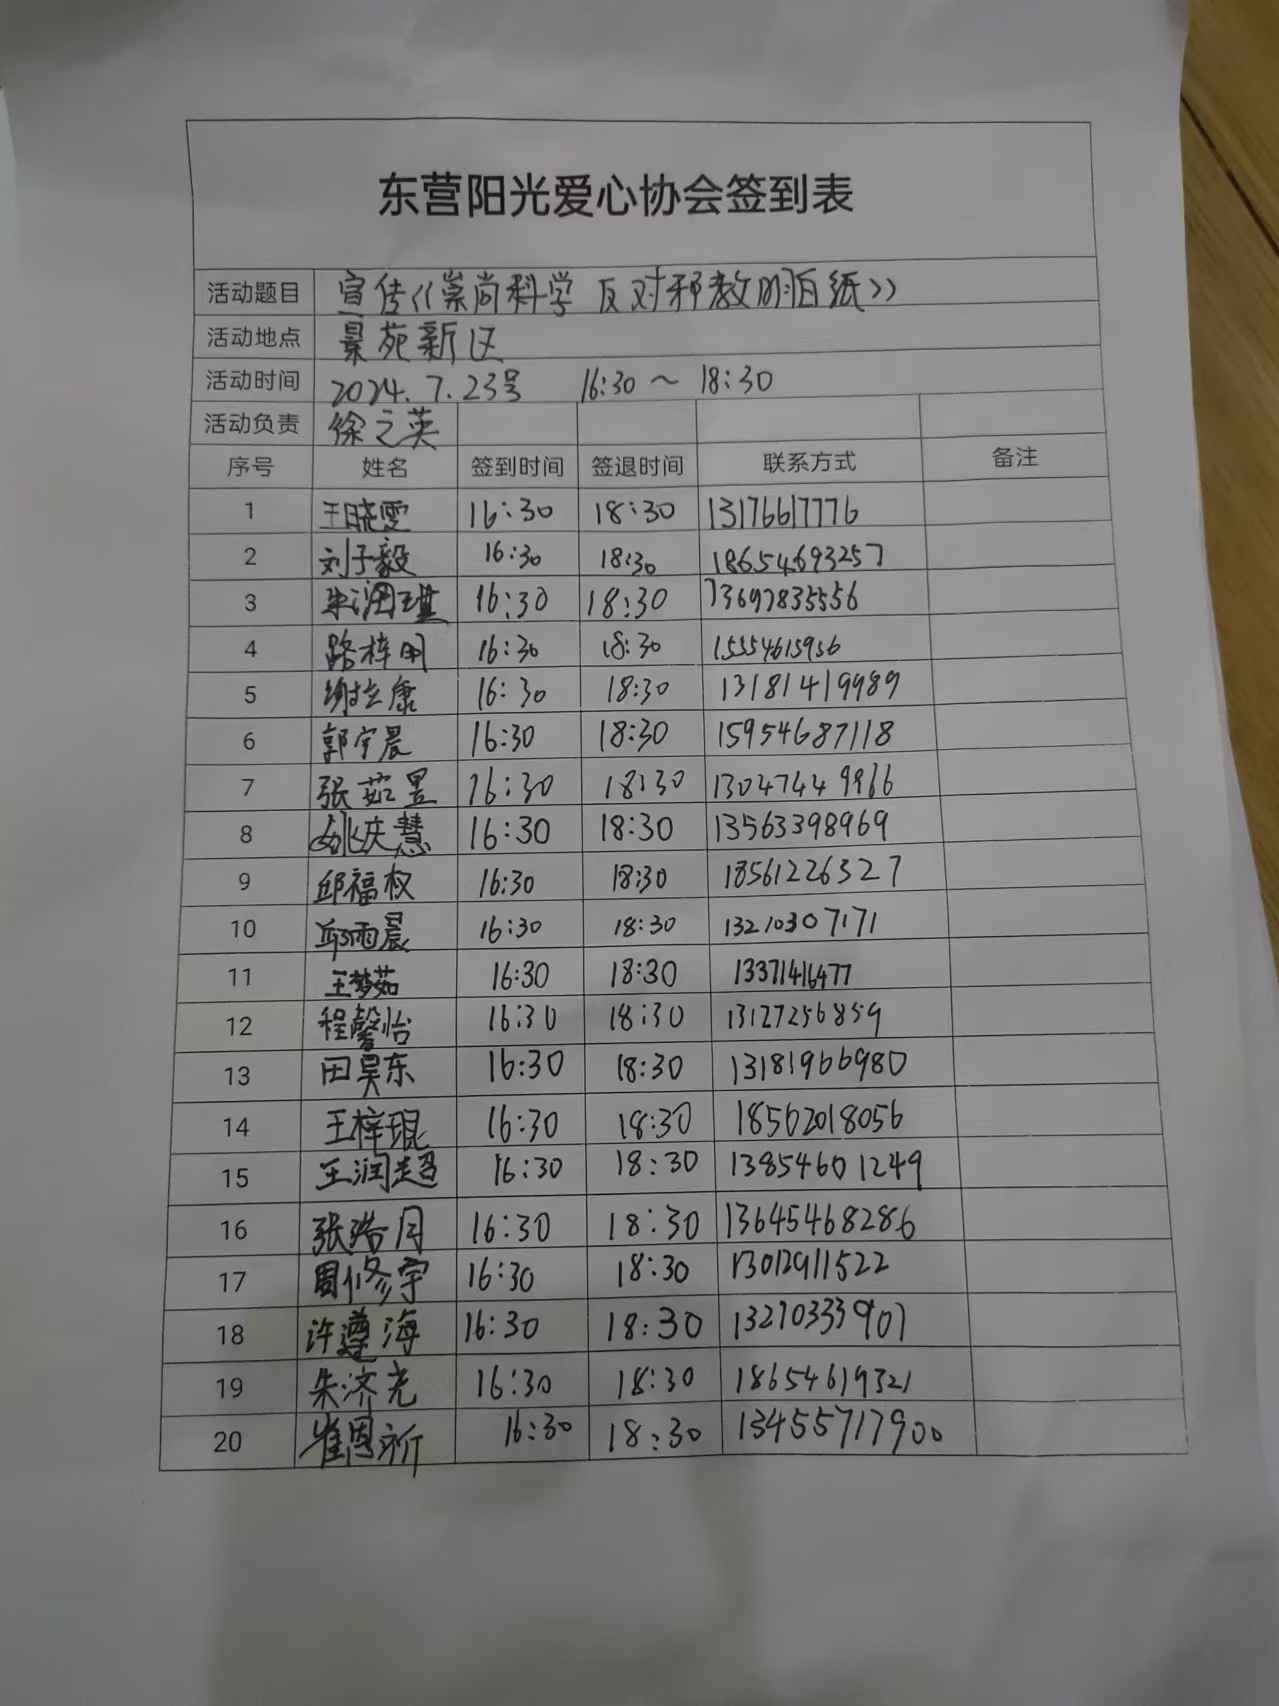 东营阳光爱心协会签到表
活动题目 宣传《崇尚科学 反对邪教明白纸》
活动地点 景苑新区
活动时间 2024.7.23号 16:30～18:30
活动负责 徐之英
序号 姓名 签到时间 签退时间 联系方式 备注
1 王晓雯 16:30 18:30 13176617776
2 刘子毅 16:30 18:30 18654693257
3 朱润琪 16:30 18:30 13697835556
4 路梓明 16:30 18:30 15554615956
5 谢立康 16:30 18:30 13181419989
6 郭宇晨 16:30 18:30 15954687118
7 张茹昱 16:30 18:30 1304744
8 姚庆慧 16:30 18:30 13563398969
9 邱福权 16:30 18:30 18561226327
10 邱雨晨 16:30 18:30 13210307171
11 王梦茹 16:30 18:30 13371416477
12 程馨怡 16:30 18:30 13127256859
13 田昊东 16:30 18:30 13181966980
14 王梓琨 16:30 18:30 18562018056
15 王润超 16:30 18:30 13854601249
16 张浩月 16:30 18:30 13645468286
17 周修宇 16:30 18:30 13012911522
18 许遵海 16:30 18:30 13210333901
19 朱济尧 16:30 18:30 18654619321
20 崔恩祈 16:30 18:30 13455717900